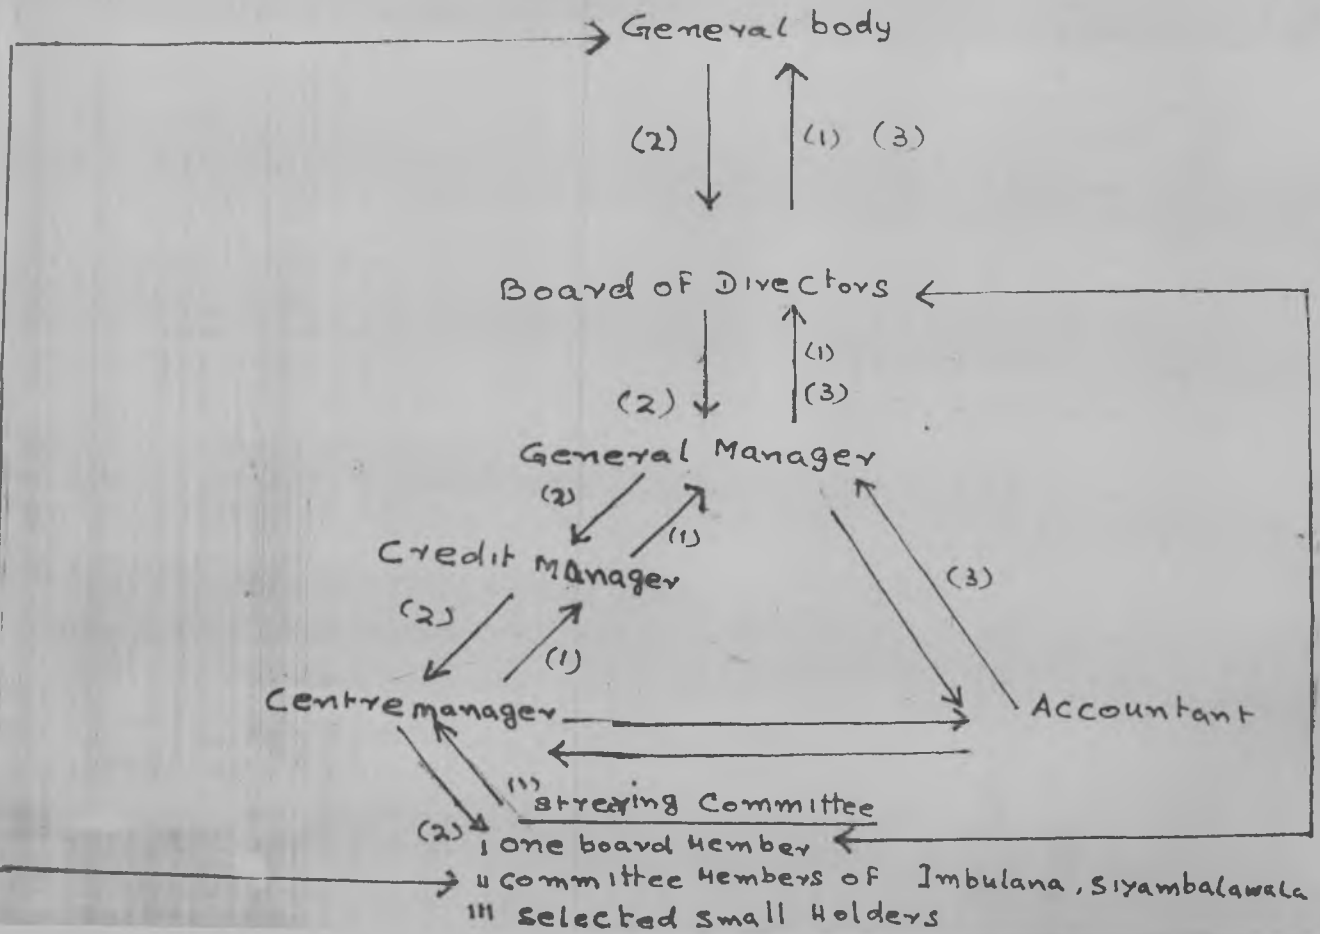 General body
(2) (1) (3)
Board of Directors
(1)
(2) (3)
General Manager
(2) (1)
Credit Manager
(3)
(2) (1)
Centre manager Accountant
(1) Streeying Committee
(2) i One board Member
ii Committee Members of Imbulana, Siyambalawala
iii Selected Small Holders